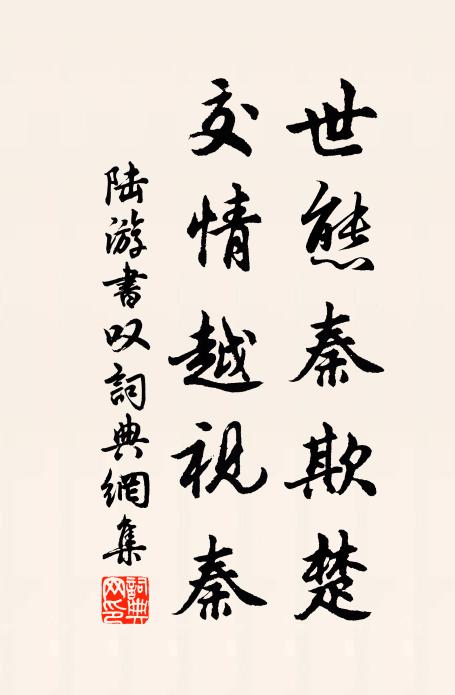 世態秦欺楚
交情越視秦
陸游書叹詞典網集
詞典網印